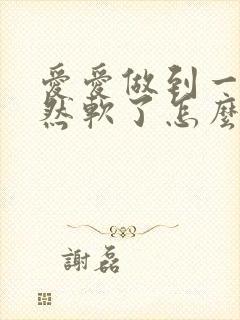 愛愛做到一
然軟了怎麼
謝磊